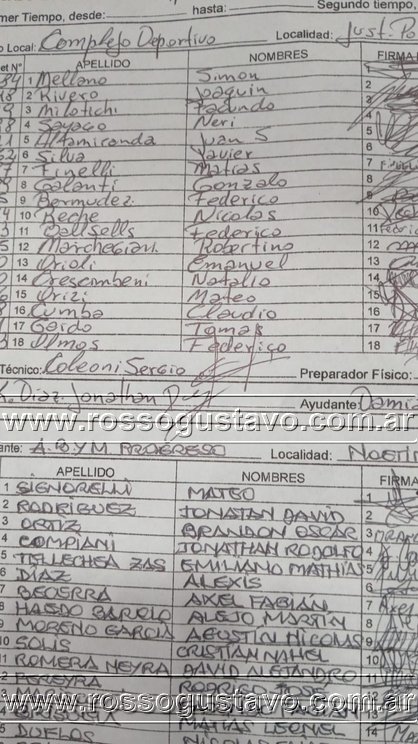 mer Tiempo, desde: hasta: Segundo tiempo,
Local: Complejo Deportivo Localidad: Just. Po
et Nº APELLIDO NOMBRES FIRMA
1 Mellano Simon 1
2 Rivero Joaquin 2
3 Milotichi Facundo 3
4 Sayago Neri 4
5 Altamiranda Juan S 5
6 Silva Javier 6
7 Finelli Matias 7
8 Galanti Gonzalo 8
9 Bermudez Federico 9
10 Reche Nicolas 10
11 Ballsells Federico 11
12 Marchegiani Robertino 12
13 Orioli Emanuel 13
14 Crescimbeni Natalio 14
15 Orizi Mateo 15
16 Cumba Claudio 16
17 Gaido Tomas 17
18 Olmos Federico 18
Técnico: Coleoni Sergio Preparador Físico:
Diaz Jonathan Ayudante Dami
www.rossogustavo.com.ar
ante: A.B.Y.M PROGRESO Localidad: NOETIN
APELLIDO NOMBRES FIRMA
1 SIGNORELLI MATEO 1
2 RODRIGUEZ JONATAN DAVID 2
3 ORTIZ BRANDON OSCAR 3
4 COMPIANI JONATHAN RODOLFO 4
5 TELLECHEA ZAS EMILIANO MATHIAS 5
6 DIAZ ALEXIS 6
7 BECERRA AXEL FABIÁN 7 Axel
8 HAEDO BAROLO ALEJO MARTÍN 8
9 MORENO GARCIA AGUSTÍN NICOLAS 9
10 SOLIS CRISTIAN NAHEL 10
11 ROMERA NEYRA DAVID ALEJANDRO 11
PEREYRA
www.rossogustavo.com.ar
DUELOS MATIAS LEONEL 14